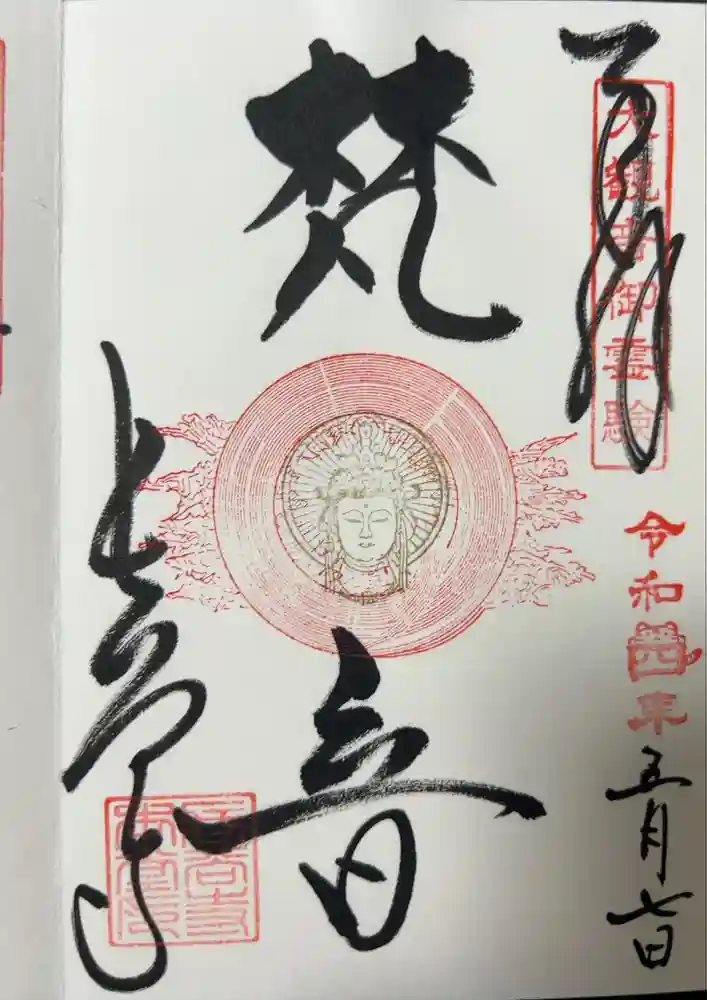 奉拝
大観音御霊験
令和四年五月七日
梵音
長谷寺